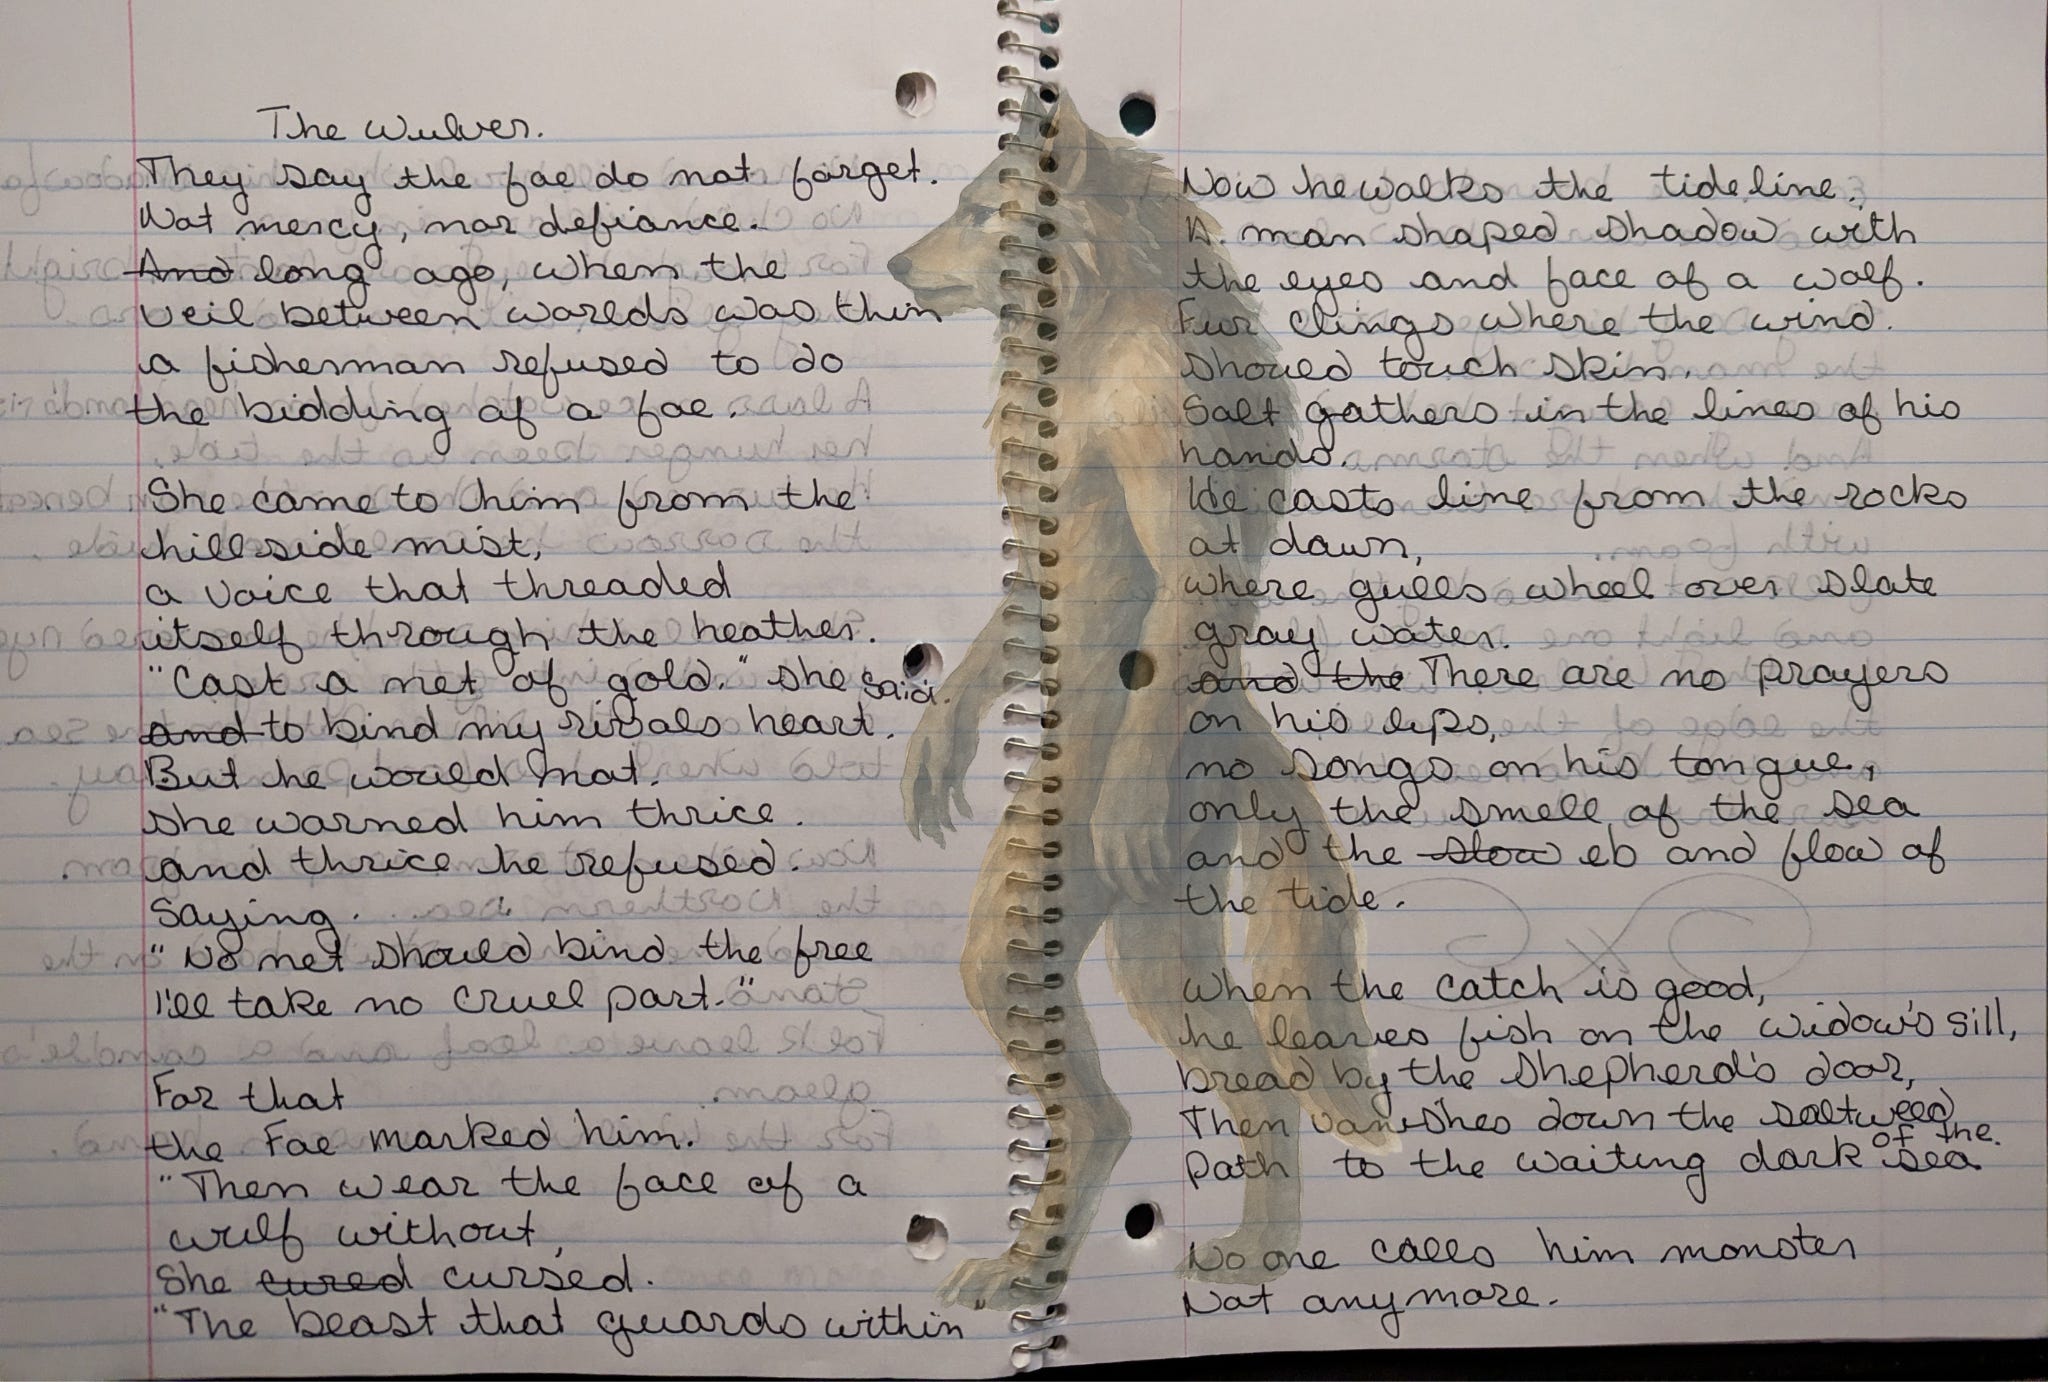 The Wulver.
They say the fae do not forget.
Not mercy, nor defiance.
And long ago, when the
veil between worlds was thin
a fisherman refused to do
the bidding of a fae.
She came to him from the
hillside mist,
a voice that threaded
itself through the heather.
"Cast a net of gold." she said.
and to bind my rivals heart.
But he would not.
she warned him thrice.
and thrice he refused.
Saying.
"No net should bind the free
I'll take no cruel part."
For that
the Fae marked him.
"Then wear the face of a
wulf without,
She cured cursed.
"The beast that guards within"
Now he walks the tideline.
A man shaped shadow with
the eyes and face of a wolf.
Fur clings where the wind.
should touch skin.
Salt gathers in the lines of his
hands.
He casts line from the rocks
at dawn,
where gulls wheel over slate
gray water.
and the There are no prayers
on his lips,
no songs on his tongue,
only the smell of the sea
and the slow eb and flow of
the tide.
When the catch is good,
he leaves fish on the widow's sill,
bread by the shepherd's door,
Then vanishes down the saltweed
path to the waiting dark of the sea.
No one calls him monster
Not anymore.